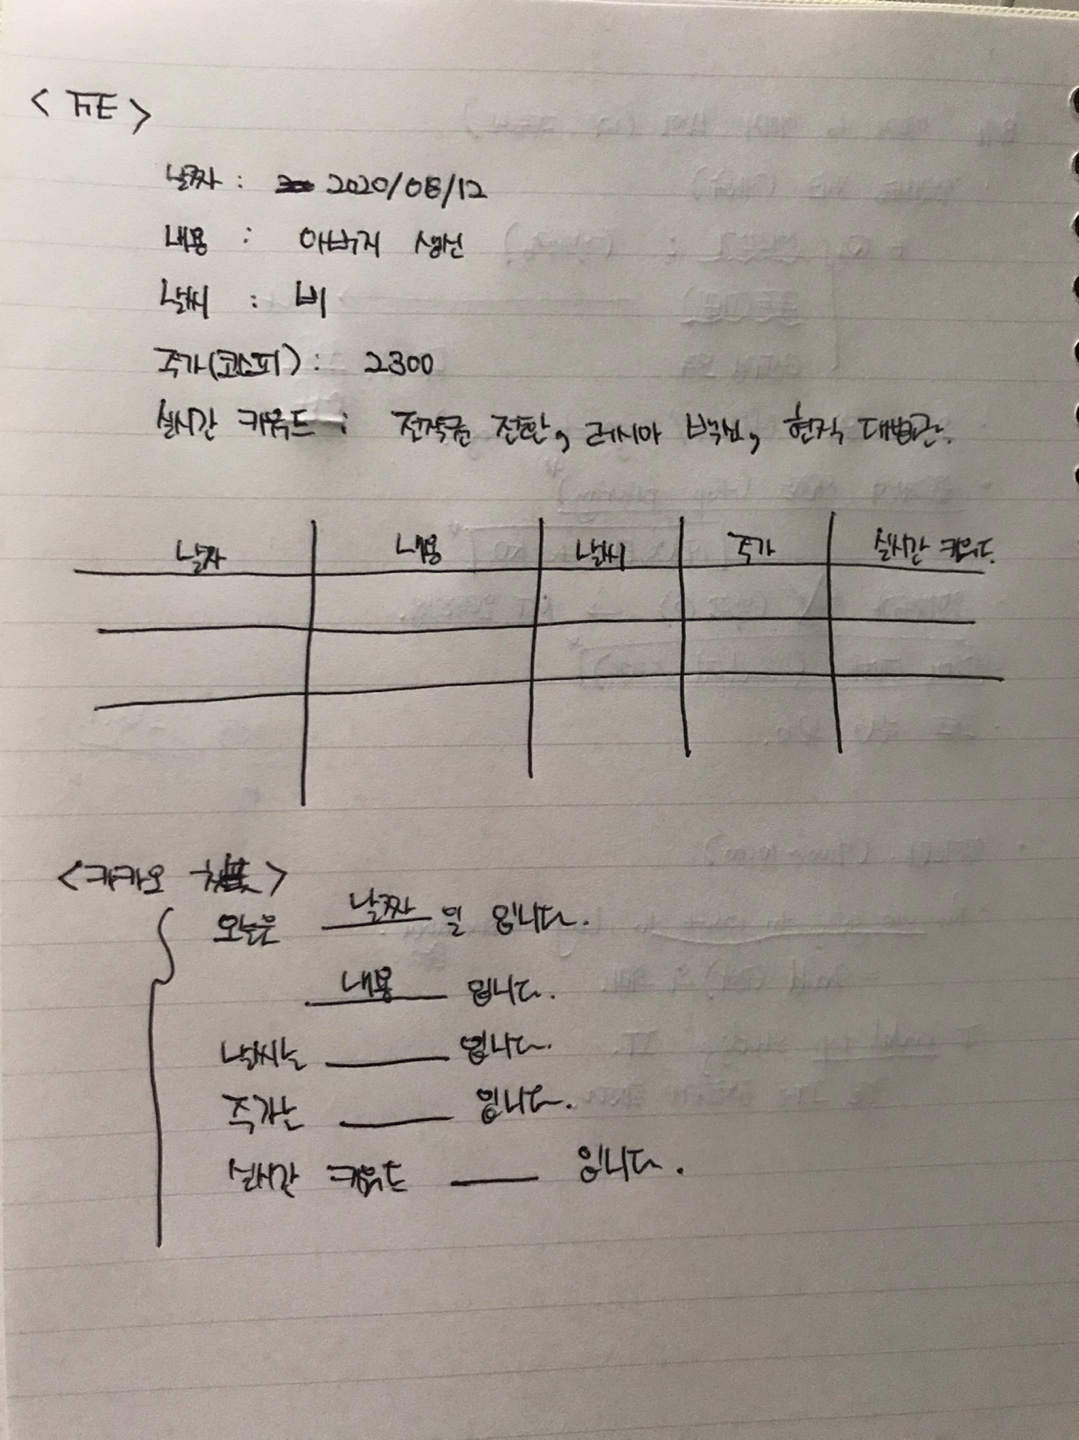 < FE >
날짜 : 2020/08/12
내용 : 아버지 생신
날씨 : 비
주가(코스피) : 2300
실시간 키워드 : 전작권 전환, 러시아 백신, 현직 대법관.
날짜 내용 날씨 주가 실시간 키워드.
<카카오 챗봇>
오늘은 날짜 일 입니다.
내용 입니다.
날씨는 ____ 입니다.
주가는 ____ 입니다.
실시간 키워드 ____ 입니다.